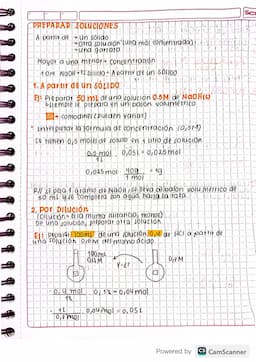 PREPARAR SOLUCIONES
A partir de → un sólido
→ otra solución (una más concentrada)
→ una gota/o
Mayor a una menor concentración
A partir de un sólido
1. A partir de un SÓLIDO
Ej: Preparar 50 ml de una solución 0.5M de NaOH(s)
siempre se prepara en un balón volumétrico
= comodines (pueden variar)
* Interpretar la fórmula de concentración (0,5M)
Es tienen 0,5 moles de soluto en 1 litro de solución
0,5 mol . 0,05L = 0,025mol
1L
0,025mol . 40g = 1g
1 mol
R// Se pesa 1 gramo de NaOH, se lleva al balón volumétrico de
50 ml y se completa con agua hasta la raya
2. POR DILUCIÓN
(Dilución = a la misma sustancia, menos)
De una solución, preparar otra solución
Ej: Preparar 100ml de una solución 0,4 de HCl a partir de
una solución 0,8M del mismo ácido
100ml
0,4M
0,8M
0,4 mol . 0,1L = 0,04 mol
1L
1L . 0,04mol = 0,05L
0,8 mol
Powered by CS CamScanner